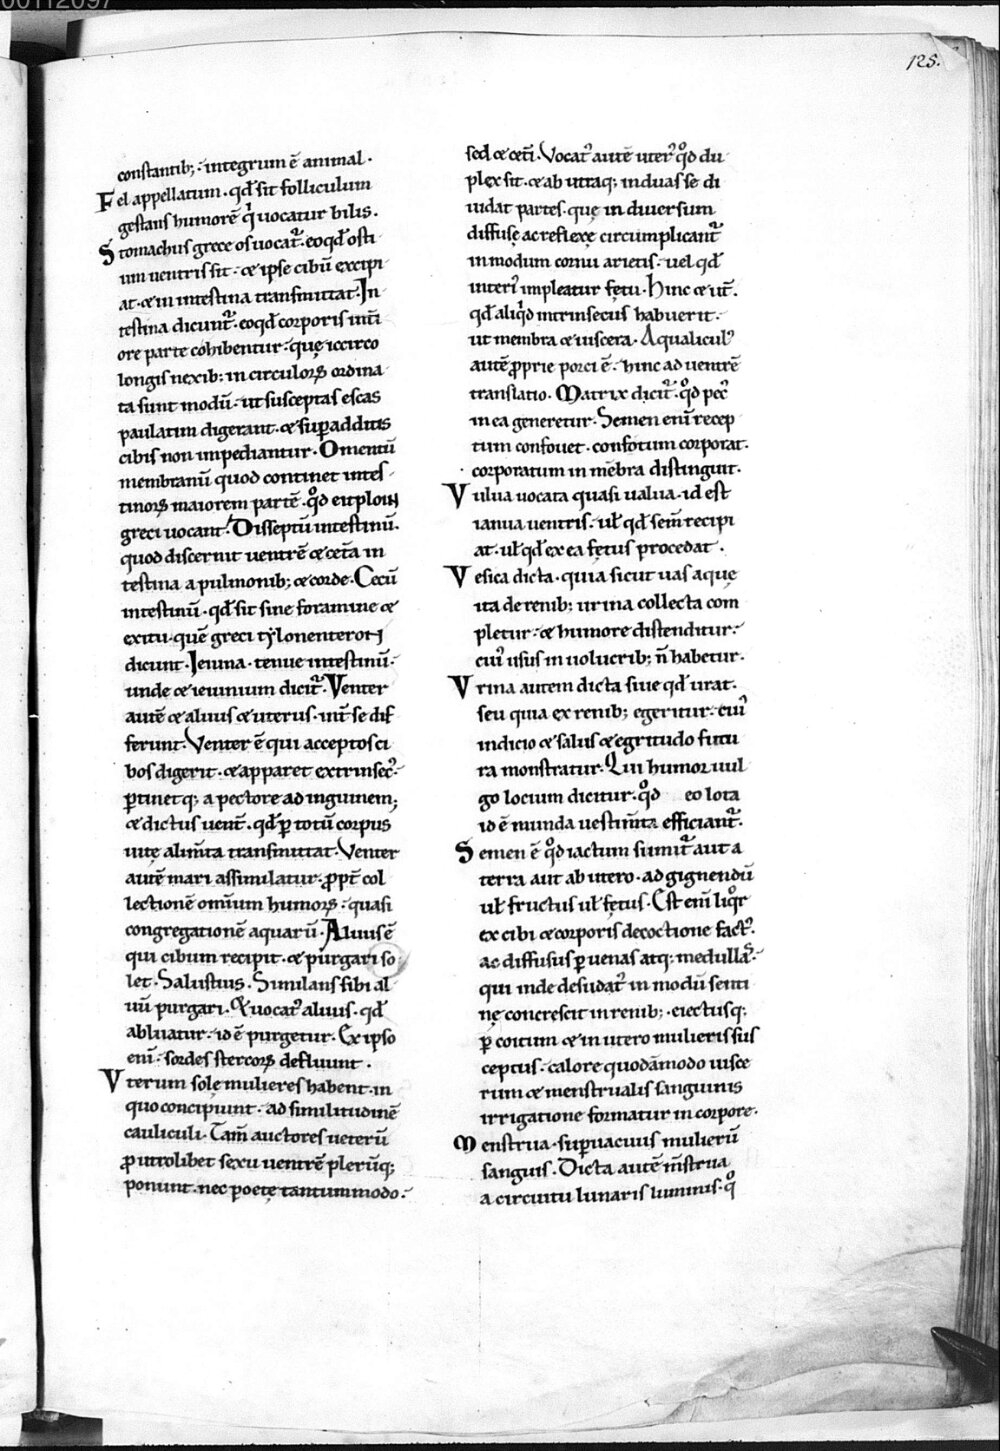 00112097
125.
constantib;. integrum ē animal.
Fel appellatum. qd̄ sit folliculum
gestans humorē q̇ uocatur bilis.
Stomachus grece os uocat᷑. eo qd̄ osti
um uentris sit. & ipse cibū excipi
at. & in intestina transmittat. In
testina dicunt᷑. eo qd̄ corporis inti
ore parte cohibentur. quę iccirco
longis nexib; in circuloꝝ ordina
ta sunt modū. ut susceptas escas
paulatim digerant. & suꝑadditis
cibis non impediantur. Omentū
membranū quod continet intes
tinoꝝ maiorem partē. qͦd eiploin
greci uocant. Disseptū intestinū.
quod discernit uentrē & cet̄a in
testina a pulmonib; & corde. Cecū
intestinū. qd̄ sit sine foramine &
exitu. quē greci tẏlonenteron
dicunt. Ieiuna. tenue intestinū.
unde & ieiunium dicit᷑. Venter
autē & aluus & uterus. int̄ se dif
ferunt. Venter ē qui acceptos ci
bos digerit. & apparet extrinsec᷒.
ꝑtinetq; a pectore ad inguinem;
& dictus uent̄. qd̄ ꝑ totū corpus
uitę alim̄ta transmittat. Venter
autē mari assimilatur. ꝓpt̄ col
lectionē omīum humoꝝ. quasi
congregationē aquarū. Aluus ē
qui cibum recipit. & purgari so
let. Salustius. Simulans sibi al
uū purgari. & uocat᷑ aluus. qd̄
abluatur. id ē purgetur. Ex ipso
enī. sordes stercoꝝ defluunt.
Vterum sole mulieres habent. in
quo concipiunt. ad similitudinē
cauliculi. Tam̄ auctores ueterū
ꝓ utrolibet sexu uentrē plerūq;
ponunt. nec poetę tantummodo.
sed & cet̄i. Vocat᷑ autē uter᷒ qͦd du
plex sit. & ab utraq; in duas se di
uidat partes. quę in diuersum
diffusę ac reflexę circumplicant᷑
in modum cornu arietis. uel qd̄
interi᷒ impleatur fętu. Hinc & ut̄.
qd̄ aliq̇d intrinsecus habuerit.
ut membra & uiscera. Aqualicul᷒
autē ꝓprie porci ē. hinc ad uentrē
translatio. Matrix dicit᷑. qͦd pec᷒
in ea generetur. Semen enī recep
tum confouet. confotum corporat.
corporatum in mēbra distinguit.
Vulua uocata quasi ualua. id est
ianua uentris. ul̄ qd̄ sem̄ recipi
at. ul̄ qd̄ ex ea fętus procedat.
Vesica dicta. quia sicut uas aquę
ita de renib; urina collecta com
pletur. & humore distenditur.
cui᷒ usus in uolucrib; n̄ habetur.
Vrina autem dicta siue qd̄ urat.
seu quia ex renib; egeritur. cui᷒
indicio & salus & egritudo futu
ra monstratur. Qui humor uul
go locium dicitur. qͦd eo lota
id ē munda uestim̄ta efficiant᷑.
Semen ē qͦd iactum sumit᷑ aut a
terra aut ab utero. ad gignendū
ul̄ fructus ul̄ fętus. Est enī liqͦr
ex cibi & corporis decoctione fact᷒.
ac diffusus ꝑ uenas atq; medullas.
qui inde desudat᷑ in modū senti
nę concrescit in renib;. eiectusq;
ꝑ coitum & in utero mulieris sus
ceptus. calore quodāmodo uisce
rum & menstrualis sanguinis
irrigatione formatur in corpore.
Menstrua. suꝑuacuus mulierū
sanguis. Dicta autē m̄strua
a circuitu lunaris luminis. qͦ